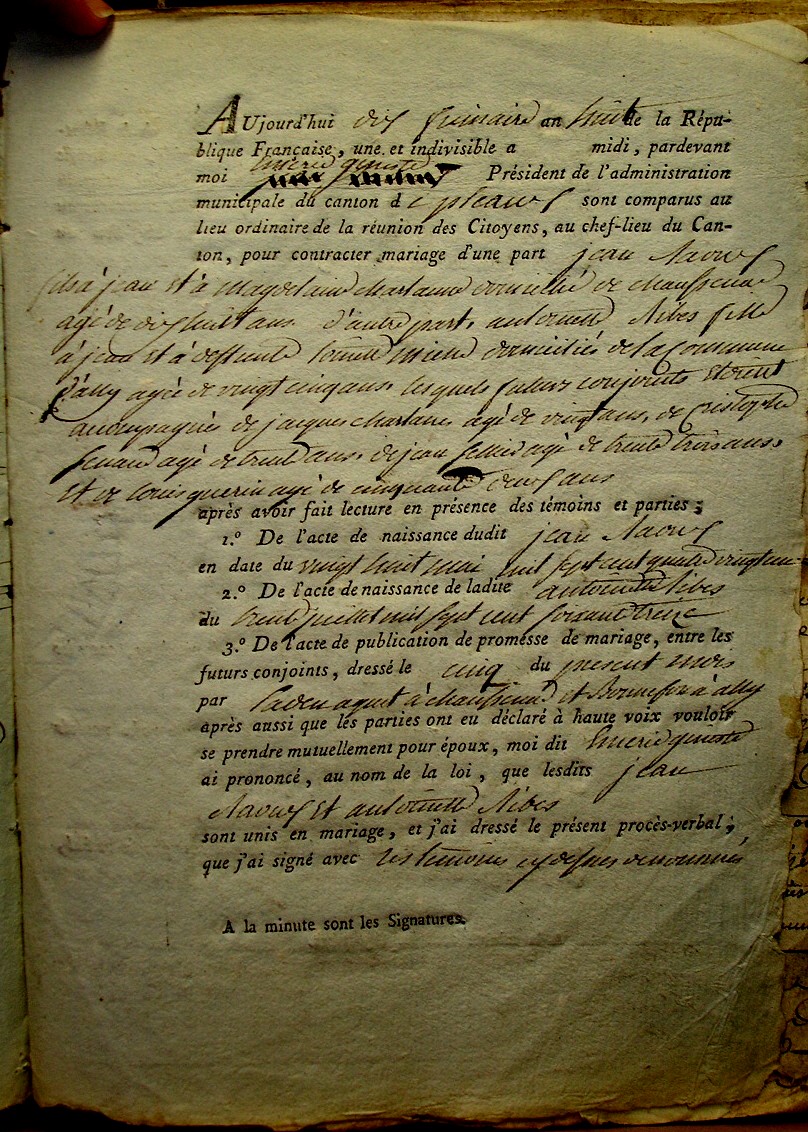 AUjourd'hui dix frimaire an huit de la Répu-
blique Française, une et indivisible a midi, pardevant
emeric ginioste
moi Président de l'administration
municipale du canton de pleaux sont comparus au
lieu ordinaire de la réunion des Citoyens, au chef-lieu du Can-
ton, pour contracter mariage d'une part jean
fils à jean et à magdelaine charlanne domicilié de chaussenac
agé de dix huit ans d'autre part antoinette Ribes fille
à jean et à domiciliés de la commune
d'ally agée de vingt cinq ans lesquels futurs conjoints etoient
accompagnés de jacques charlanes agé de vingt ans, de cristophe
agé de trente ans de jean agé de trente trois ans
et de louis guerin agé de cinquante deux ans
après avoir fait lecture en présence des témoins et parties ;
1.° De l'acte de naissance dudit jean
en date du vingt huit mai mil sept cent quatre vingt un
2.° De l'acte de naissance de ladite antoinette Ribes
du trente juillet mil sept cent soixante treize
3.° De l'acte de publication de promesse de mariage, entre les
futurs conjoints, dressé le cinq du present mois
par à chaussenac et Bonnefon à ally
après aussi que les parties ont eu déclaré à haute voix vouloir
se prendre mutuellement pour époux, moi dit emeric ginioste
ai prononcé, au nom de la loi, que lesdits jean
et antoinette Ribes
sont unis en mariage, et j'ai dressé le présent procès-verbal ;
que j'ai signé avec les temoins cy dessus denommés
A la minute sont les Signatures.